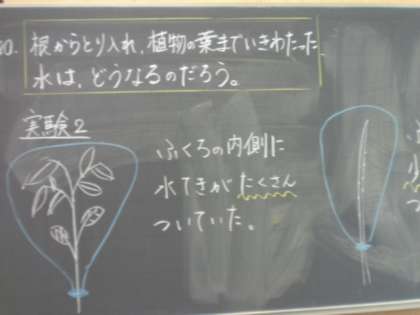 根からとり入れ、植物の葉までいきわたった
水は、どうなるのだろう。
実験2
ふくろの内側に
水てきがたくさん
ついていた。